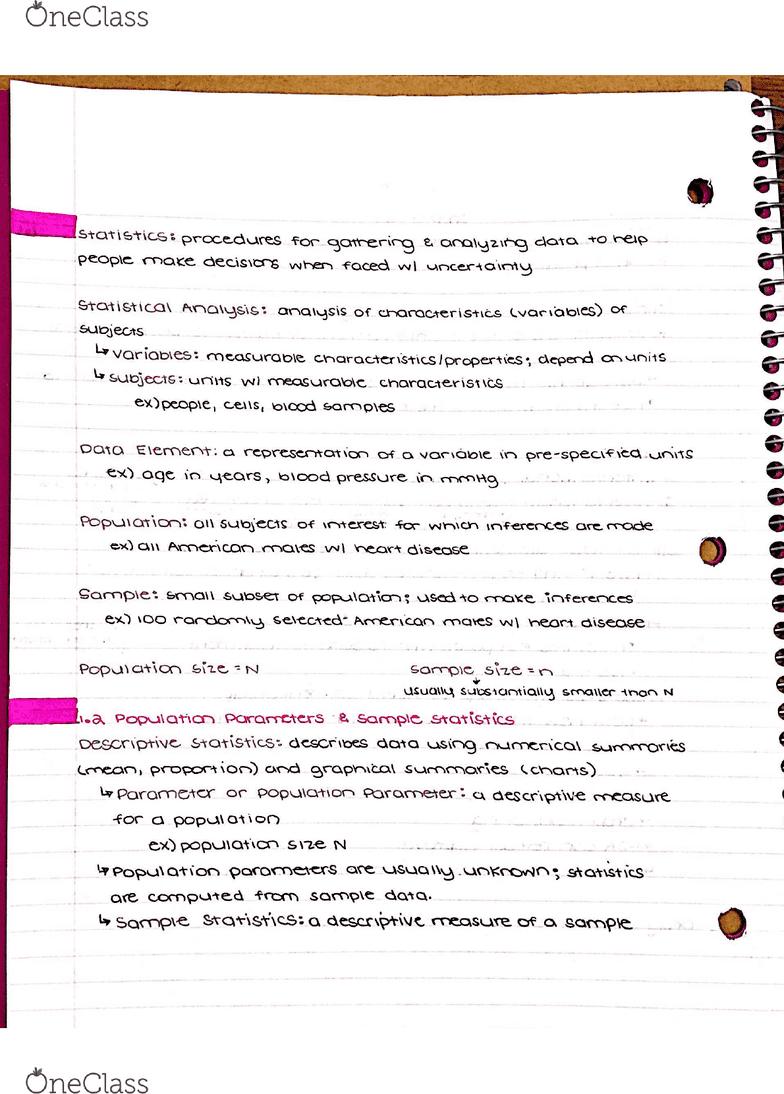 OneClass
Statistics: procedures for gathering & analyzing data to help
people make decisions when faced w/ uncertainty
Statistical Analysis: analysis of characteristics (variables) of
subjects
↳ variables: measurable characteristics/properties; depend on units
↳ subjects: units w/ measurable characteristics
ex) people, cells, blood samples
Data Element: a representation of a variable in pre-specified units
ex) age in years, blood pressure in mmHg
Population: all subjects of interest for which inferences are made
ex) all American males w/ heart disease
Sample: small subset of population; used to make inferences
ex) 100 randomly selected American males w/ heart disease
Population size = N sample size = n
↓
usually substantially smaller than N
1.2 Population Parameters & Sample Statistics
Descriptive Statistics: describes data using numerical summaries
(mean, proportion) and graphical summaries (charts)
↳ Parameter or Population Parameter: a descriptive measure
for a population
ex) population size N
↳ Population parameters are usually unknown; statistics
are computed from sample data.
↳ Sample Statistics: a descriptive measure of a sample
OneClass